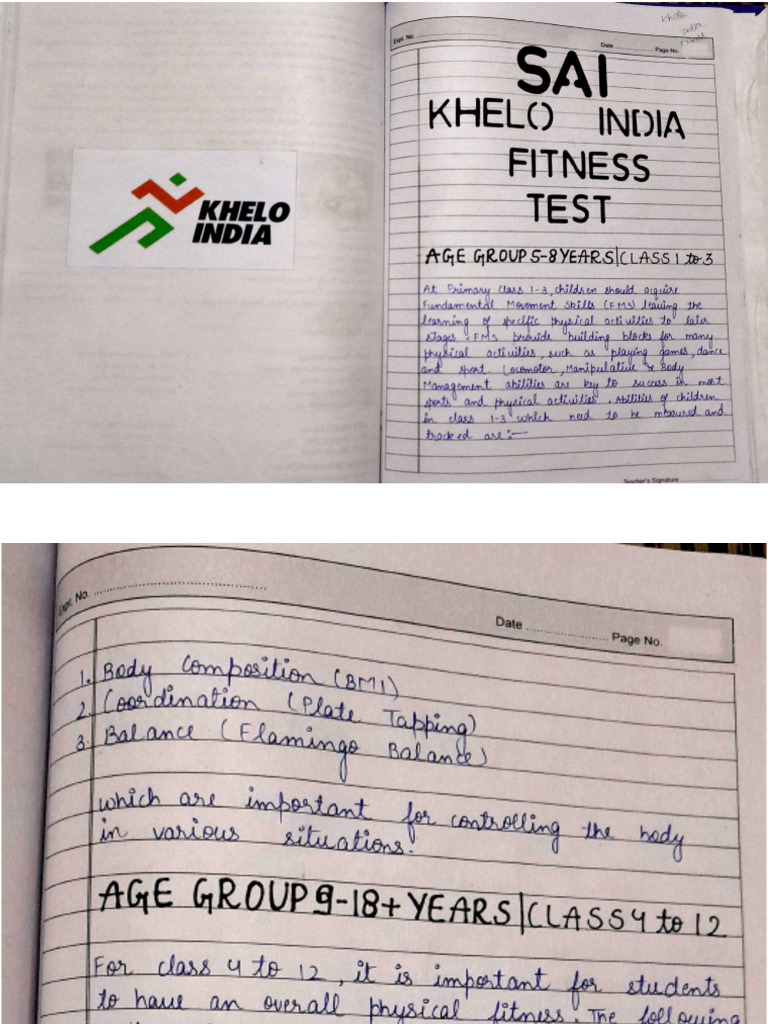 Khelo
India
Expt. No.
Date
Page No.
SAI
KHELO INDIA
FITNESS
TEST
KHELO
INDIA
AGE GROUP 5-8 YEARS|CLASS 1 to 3
At Primary Class 1-3, children should acquire
Fundamental Movement Skills (FMS) leaving the
learning of specific physical activities to later
stages. FMS provide building blocks for many
physical activities, such as playing games, dance
and sport. Locomotor, Manipulative & Body
Management abilities are key to success in most
sports and physical activities. Abilities of children
in class 1-3 which need to be measured and
tracked are:-
Teacher's Signature
Expt. No.
Date
Page No.
1. Body Composition (BMI)
2. Coordination (Plate Tapping)
3. Balance (Flamingo Balance)
which are important for controlling the body
in various situations.
AGE GROUP 9-18+ YEARS|CLASS 4 to 12
For class 4 to 12, it is important for students
to have an overall physical fitness. The following